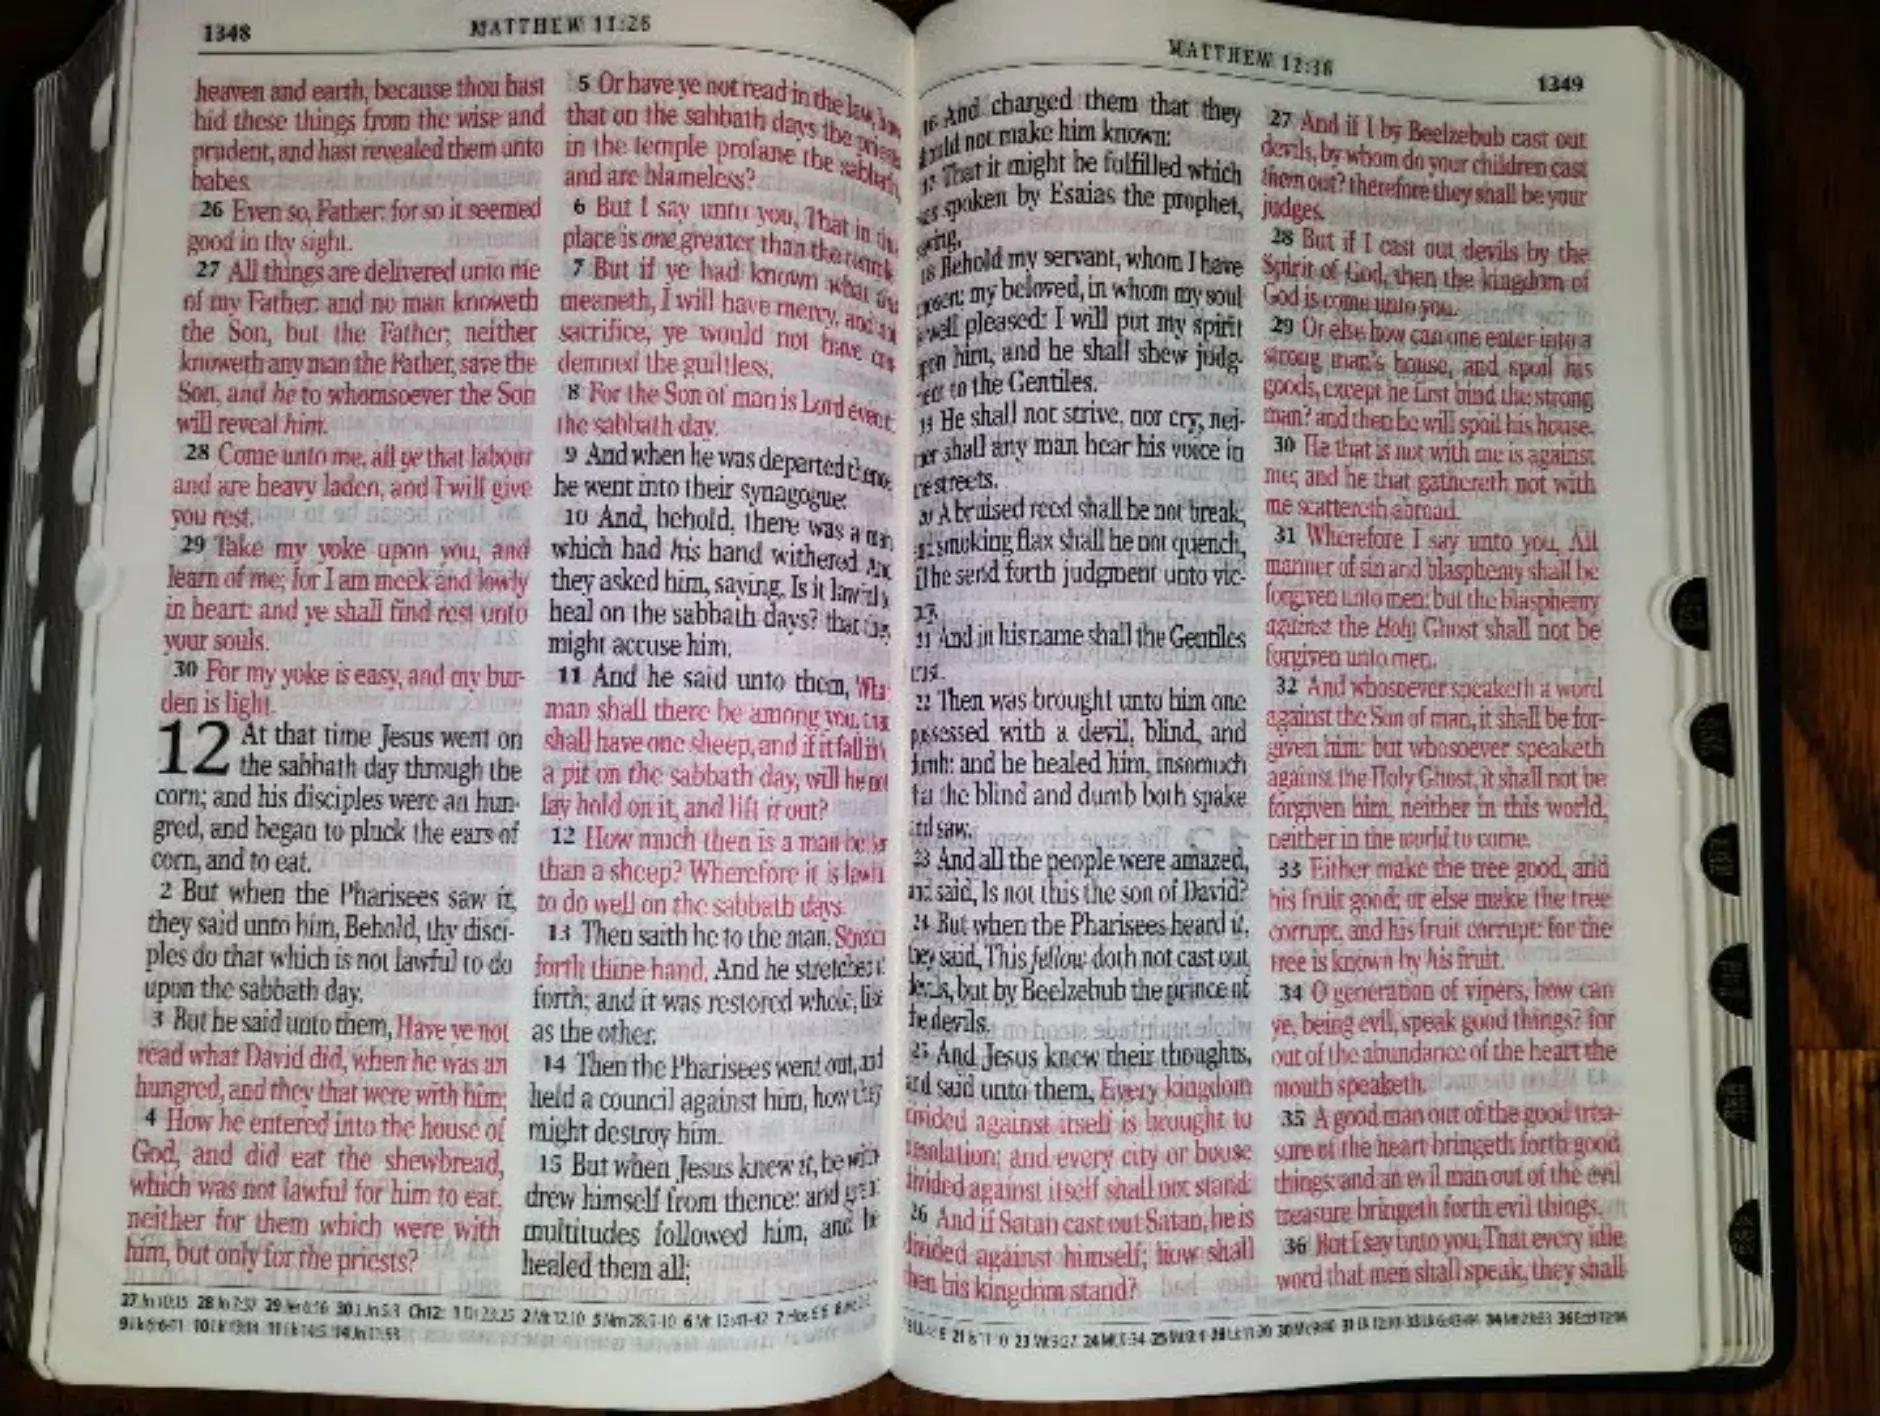 1348
MATTHEW 11:26
heaven and earth, because thou hast
hid these things from the wise and
prudent, and hast revealed them unto
babes.
26 Even so, Father: for so it seemed
good in thy sight.
27 All things are delivered unto me
of my Father: and no man knoweth
the Son, but the Father; neither
knoweth any man the Father, save the
Son, and he to whomsoever the Son
will reveal him.
28 Come unto me, all ye that labour
and are heavy laden, and I will give
you rest.
29 Take my yoke upon you, and
learn of me; for I am meek and lowly
in heart: and ye shall find rest unto
your souls.
30 For my yoke is easy, and my bur-
den is light.
12 At that time Jesus went on
the sabbath day through the
corn; and his disciples were an hun-
gred, and began to pluck the ears of
corn, and to eat.
2 But when the Pharisees saw it,
they said unto him, Behold, thy disci-
ples do that which is not lawful to do
upon the sabbath day.
3 But he said unto them, Have ye not
read what David did, when he was an
hungred, and they that were with him;
4 How he entered into the house of
God, and did eat the shewbread,
which was not lawful for him to eat,
neither for them which were with
him, but only for the priests?
5 Or have ye not read in the law, how
that on the sabbath days the priests
in the temple profane the sabbath,
and are blameless?
6 But I say unto you, That in this
place is one greater than the temple.
7 But if ye had known what this
meaneth, I will have mercy, and not
sacrifice, ye would not have con-
demned the guiltless.
8 For the Son of man is Lord even of
the sabbath day.
9 And when he was departed thence,
he went into their synagogue:
10 And, behold, there was a man
which had his hand withered. And
they asked him, saying, Is it lawful to
heal on the sabbath days? that they
might accuse him.
11 And he said unto them, What
man shall there be among you, that
shall have one sheep, and if it fall in
a pit on the sabbath day, will he not
lay hold on it, and lift it out?
12 How much then is a man better
than a sheep? Wherefore it is lawful
to do well on the sabbath days.
13 Then saith he to the man, Stretch
forth thine hand. And he stretched it
forth; and it was restored whole, like
as the other.
14 Then the Pharisees went out, and
held a council against him, how they
might destroy him.
15 But when Jesus knew it, he with-
drew himself from thence: and great
multitudes followed him, and he
healed them all;
27 Jn 10:15 28 Jn 7:37 30 1 Jn 5:3 Ch 12: 2 Mt 12:10
MATTHEW 12:36
1349
16 And charged them that they
should not make him known:
17 That it might be fulfilled which
was spoken by Esaias the prophet,
saying,
18 Behold my servant, whom I have
chosen; my beloved, in whom my soul
is well pleased: I will put my spirit
upon him, and he shall shew judg-
ment to the Gentiles.
19 He shall not strive, nor cry; nei-
ther shall any man hear his voice in
the streets.
20 A bruised reed shall he not break,
and smoking flax shall he not quench,
till he send forth judgment unto vic-
tory.
21 And in his name shall the Gentiles
trust.
22 Then was brought unto him one
possessed with a devil, blind, and
dumb: and he healed him, insomuch
that the blind and dumb both spake
and saw.
23 And all the people were amazed,
and said, Is not this the son of David?
24 But when the Pharisees heard it,
they said, This fellow doth not cast out
devils, but by Beelzebub the prince of
the devils.
25 And Jesus knew their thoughts,
and said unto them, Every kingdom
divided against itself is brought to
desolation; and every city or house
divided against itself shall not stand:
26 And if Satan cast out Satan, he is
divided against himself; how shall
then his kingdom stand?
27 And if I by Beelzebub cast out
devils, by whom do your children cast
them out? therefore they shall be your
judges.
28 But if I cast out devils by the
Spirit of God, then the kingdom of
God is come unto you.
29 Or else how can one enter into a
strong man's house, and spoil his
goods, except he first bind the strong
man? and then he will spoil his house.
30 He that is not with me is against
me; and he that gathereth not with
me scattereth abroad.
31 Wherefore I say unto you, All
manner of sin and blasphemy shall be
forgiven unto men: but the blasphemy
against the Holy Ghost shall not be
forgiven unto men.
32 And whosoever speaketh a word
against the Son of man, it shall be for-
given him: but whosoever speaketh
against the Holy Ghost, it shall not be
forgiven him, neither in this world,
neither in the world to come.
33 Either make the tree good, and
his fruit good; or else make the tree
corrupt, and his fruit corrupt: for the
tree is known by his fruit.
34 O generation of vipers, how can
ye, being evil, speak good things? for
out of the abundance of the heart the
mouth speaketh.
35 A good man out of the good trea-
sure of the heart bringeth forth good
things: and an evil man out of the evil
treasure bringeth forth evil things.
36 But I say unto you, That every idle
word that men shall speak, they shall